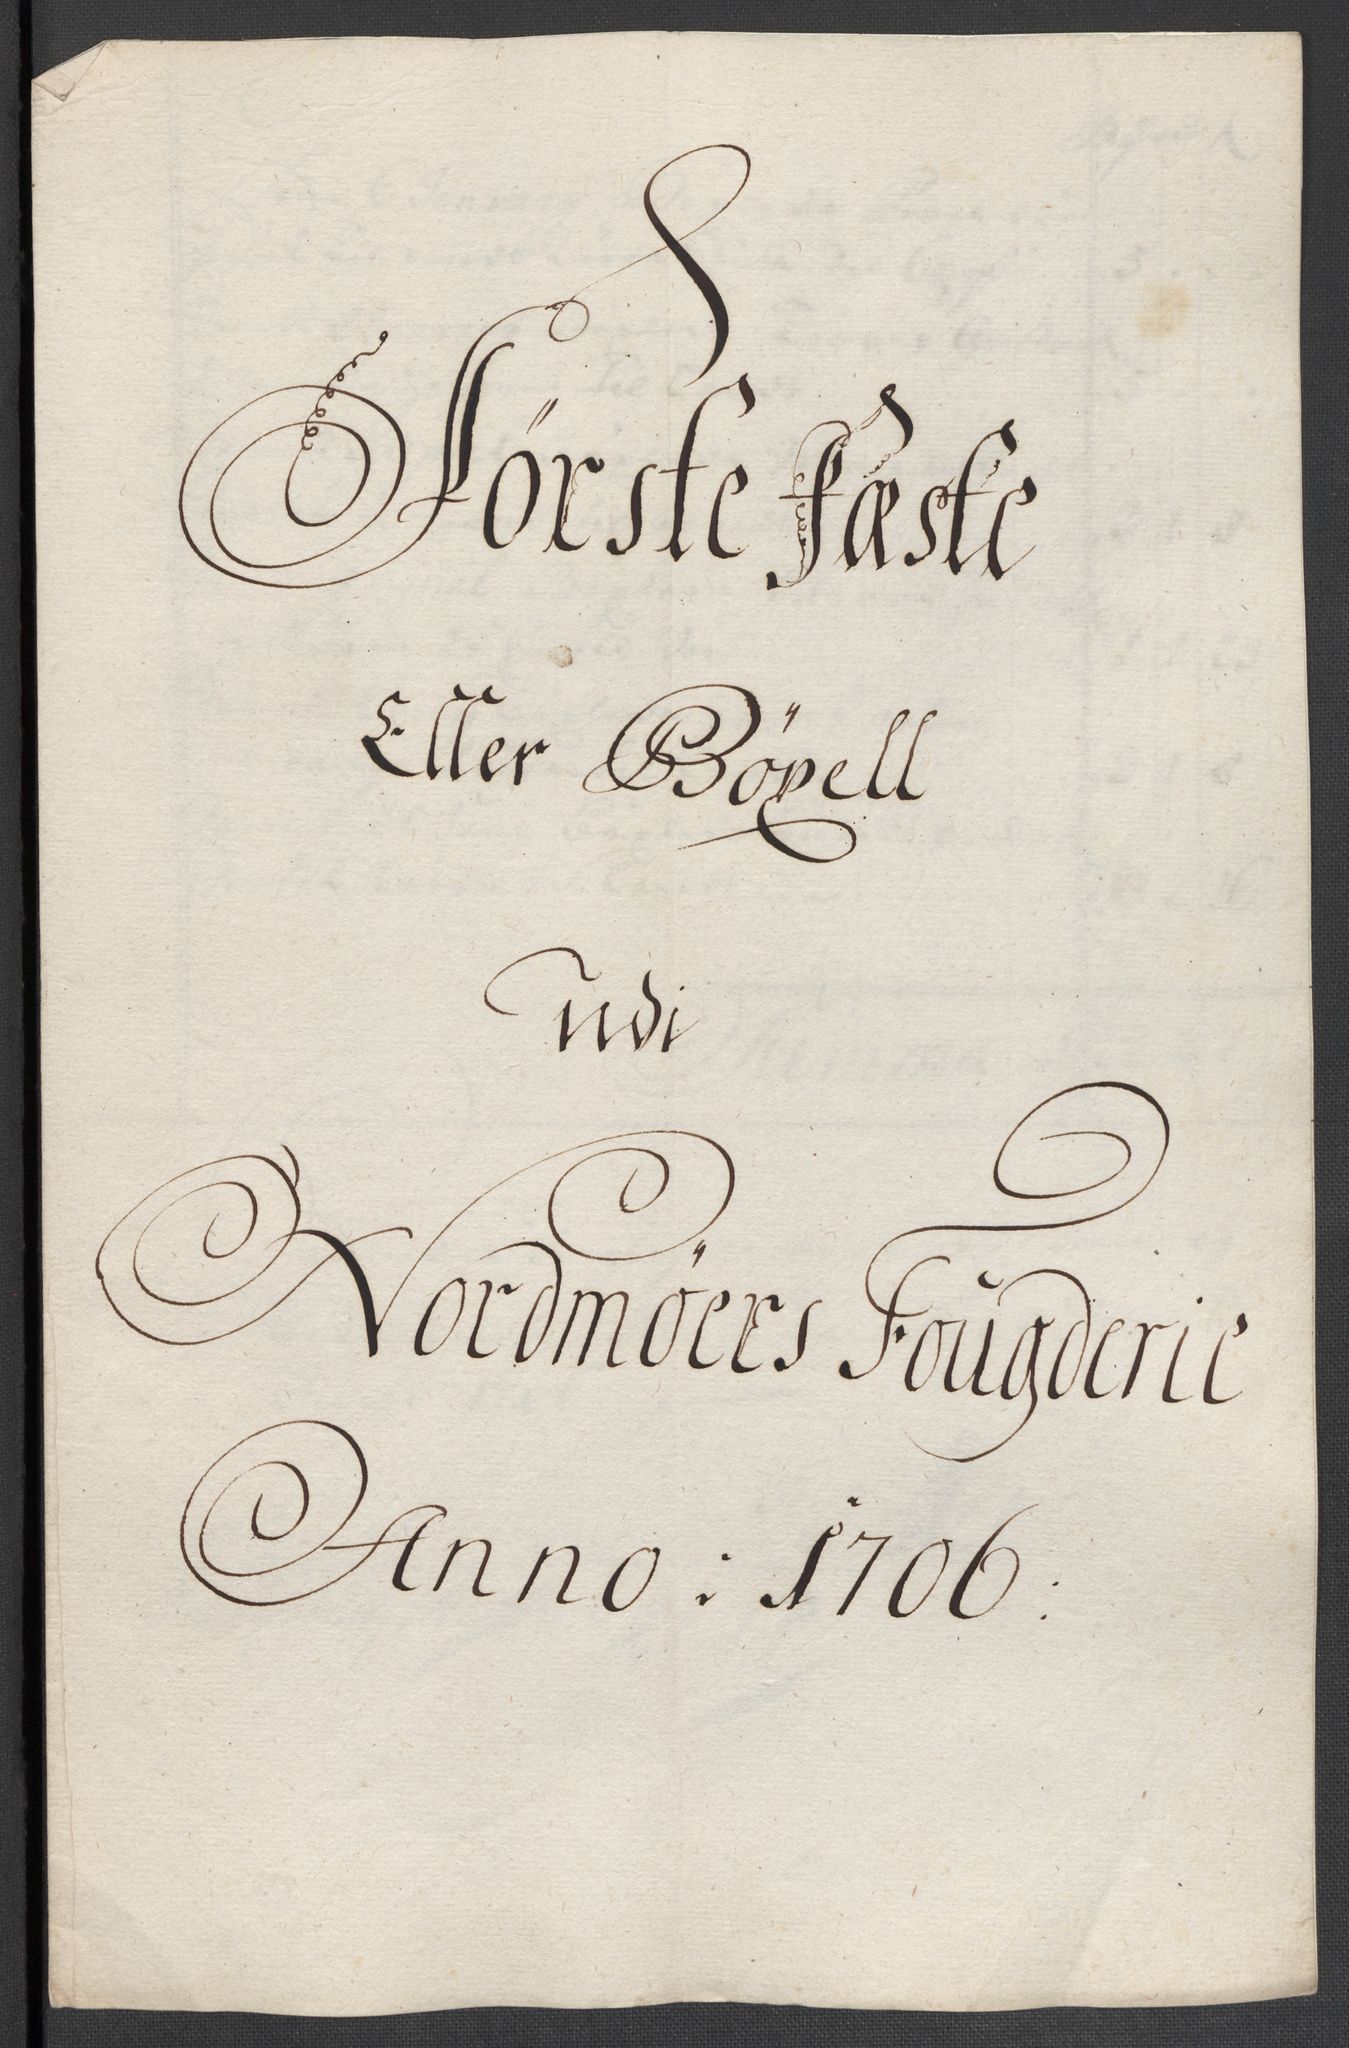 Förste Fæste
Eller Böxell
udi
Nordmöers Fougderie
Anno: 1706: